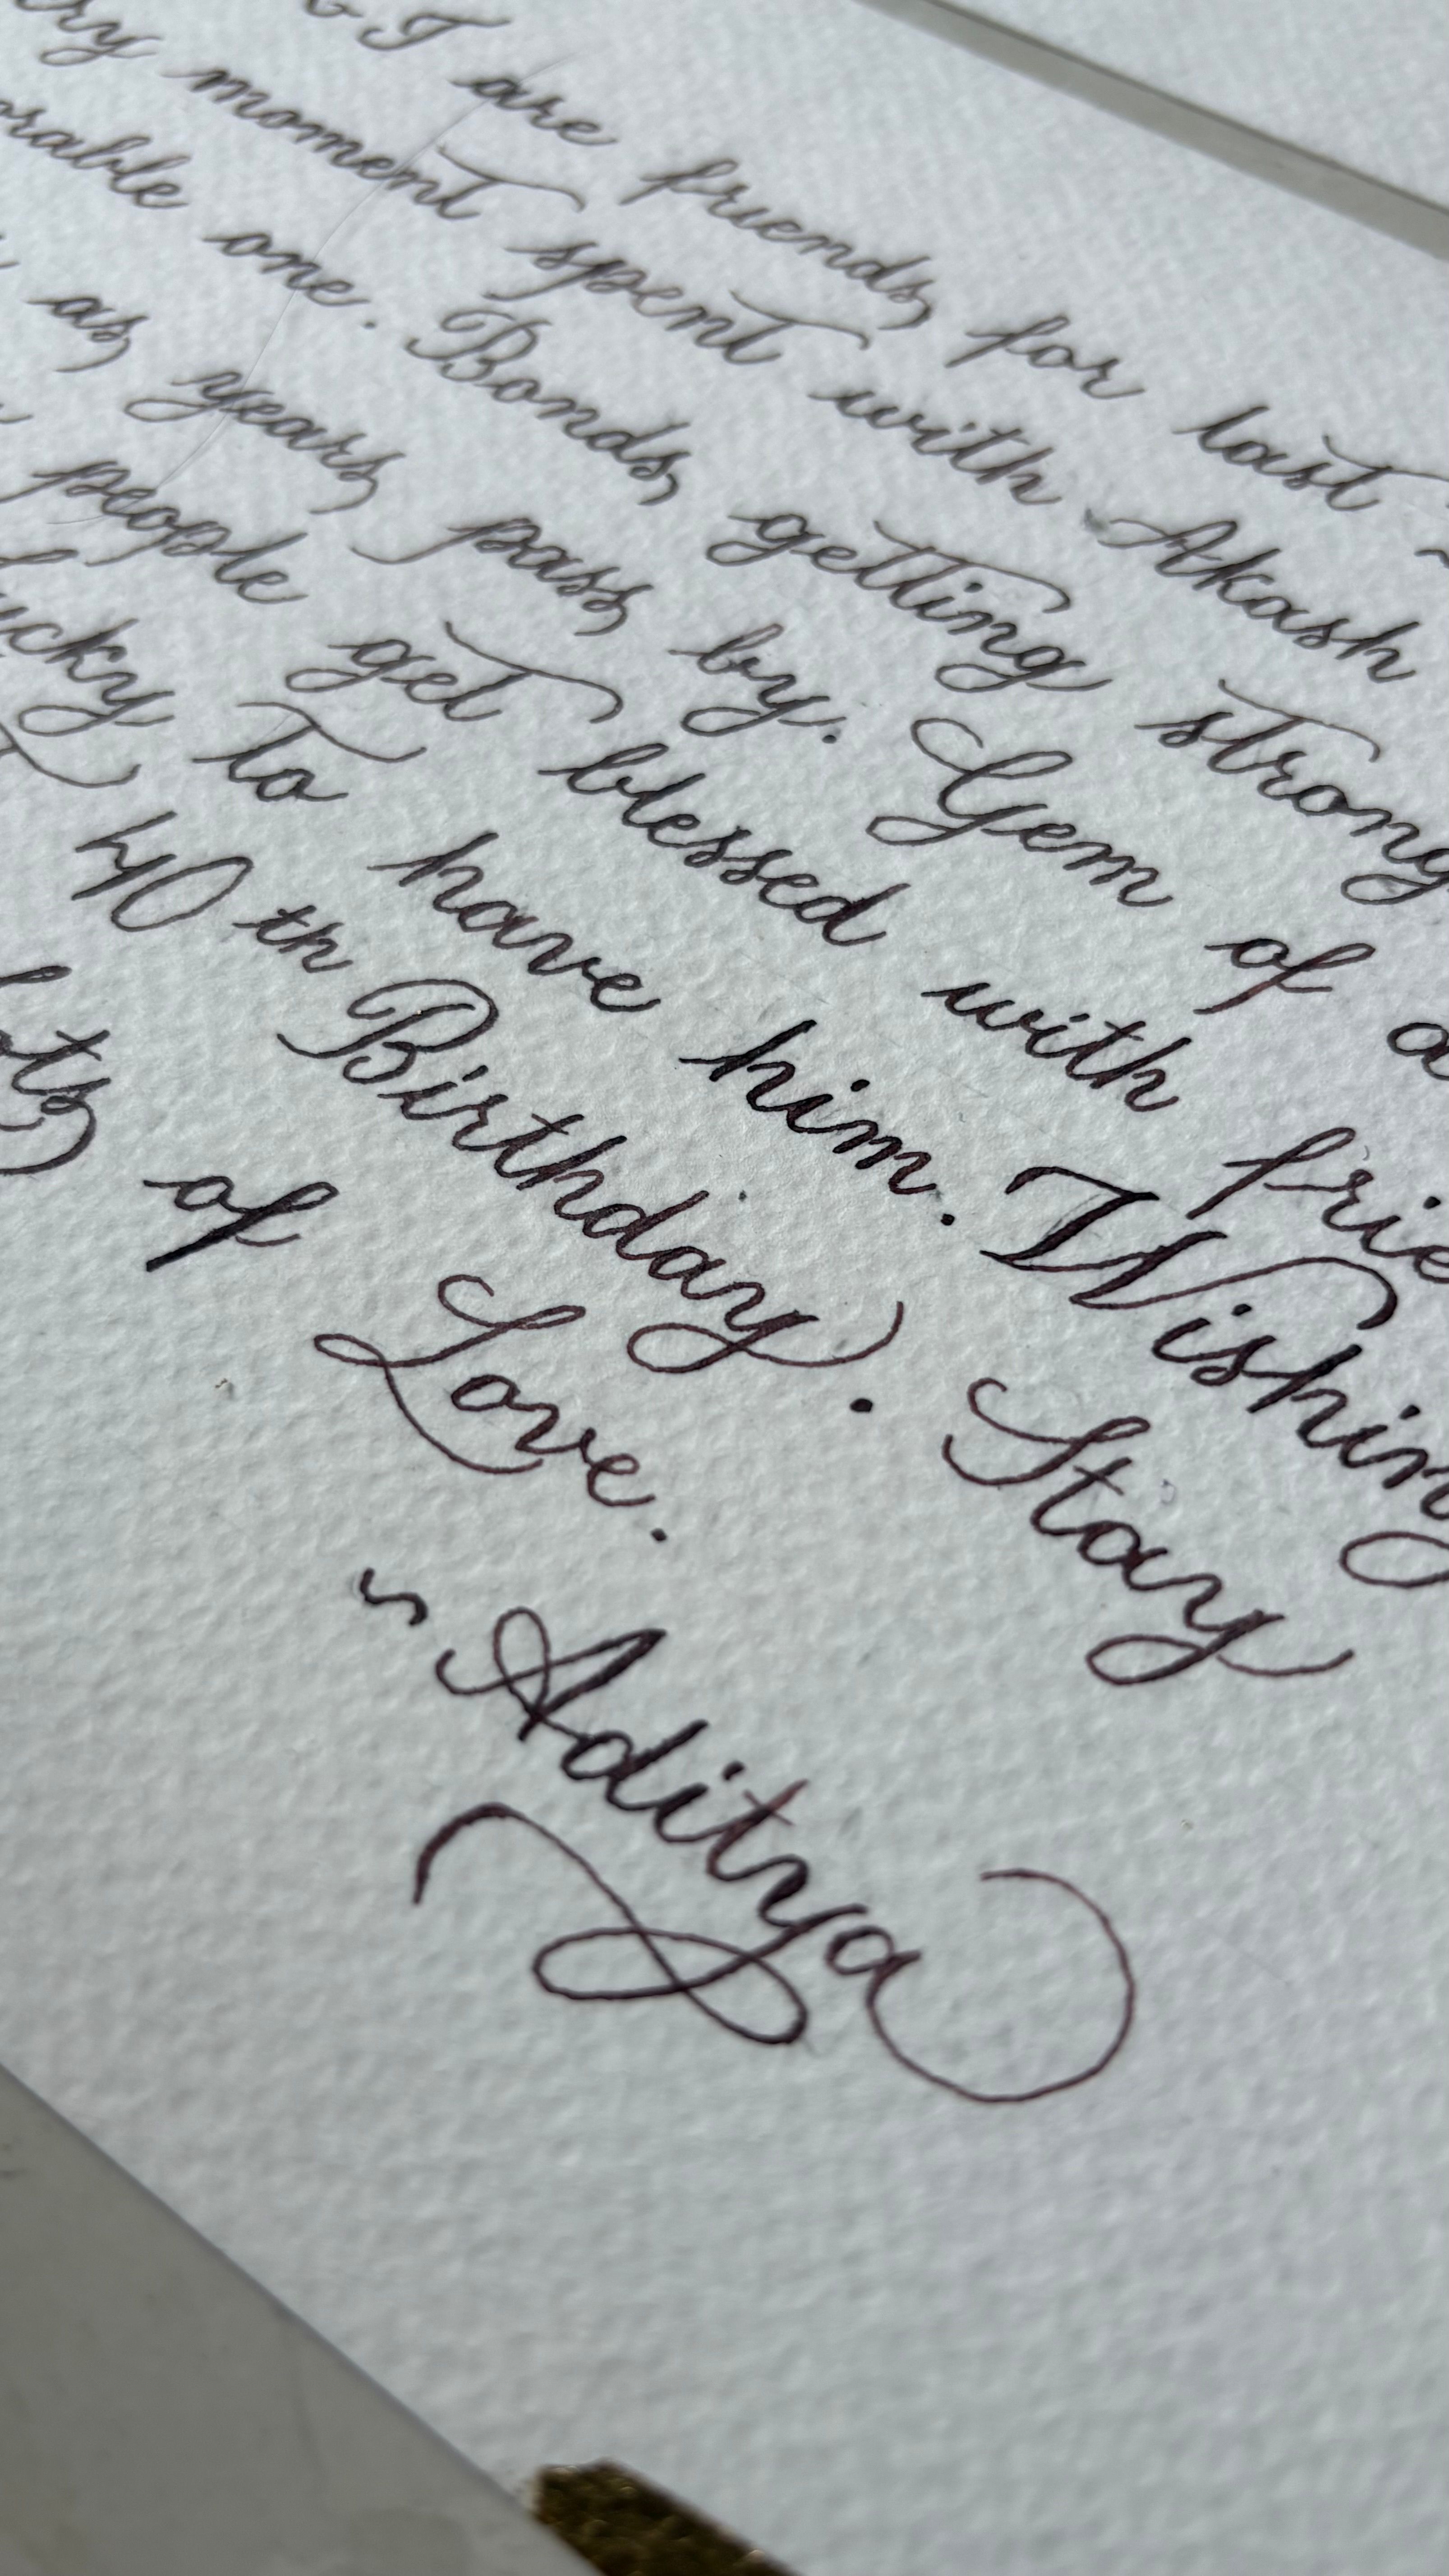 & I are friends for last
ry moment spent with Akash
orable one. Bonds getting strong
as years pass by. Gem of a
people get blessed with frie
ucky to have him. Wishin
40th Birthday. Stay
of Love.
~ Aditya